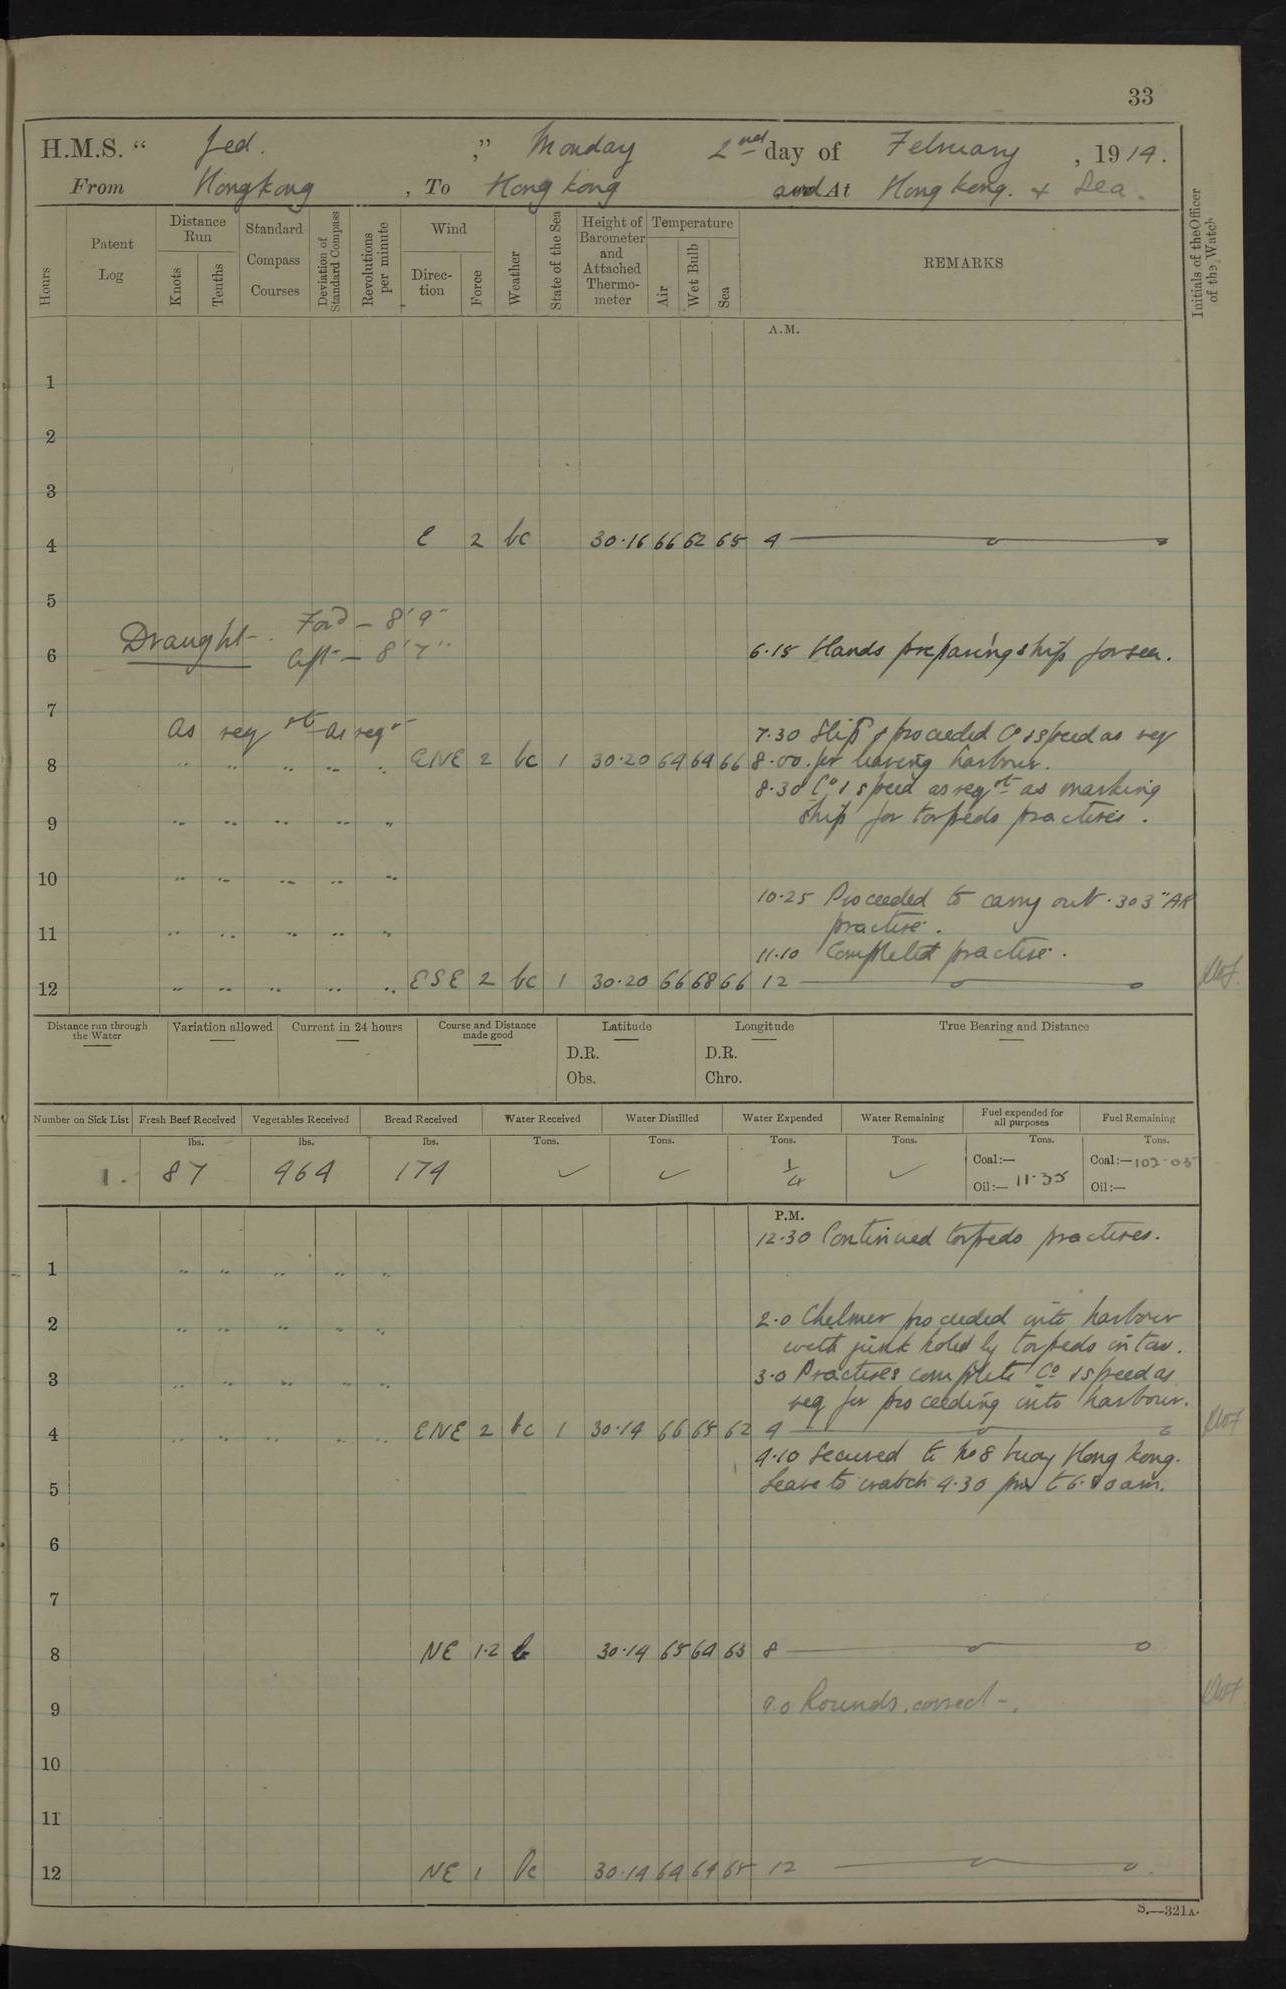 33
H.M.S. “ Jed. ,” Monday 2nd day of February , 1914.
From Hongkong , To Hong Kong and At Hong Kong. & Sea.
Hours
Patent Log
Distance Run
Knots
Tenths
Standard Compass Courses
Deviation of Standard Compass
Revolutions per minute
Wind
Direc-tion
Force
Weather
State of the Sea
Height of Barometer and Attached Thermo-meter
Temperature
Air
Wet Bulb
Sea
REMARKS
Initials of the Officer of the Watch
A.M.
1
2
3
4 E 2 bc 30.16 66 62 65 4
5
Draught - Ford - 8' 9"
6 Aft - 8' 7" 6.15 Hands preparing ship for sea.
7
As reqrd As reqr 7.30 Slip & proceeded Co & speed as req
8 " " " " " ENE 2 bc 1 30.20 64 64 66 8.00. for leaving harbour.
8.30 Co & speed as reqrd as marking
9 " " " " " ship for torpedo practises.
10 " " " " "
10.25 Proceeded to carry out .303" AR
11 " " " " " practise.
11.10 Completed practise.
12 " " " " " ESE 2 bc 1 30.20 66 68 66 12
Distance run through the Water
Variation allowed
Current in 24 hours
Course and Distance made good
Latitude
D.R.
Obs.
Longitude
D.R.
Chro.
True Bearing and Distance
Number on Sick List
Fresh Beef Received
Vegetables Received
Bread Received
Water Received
Water Distilled
Water Expended
Water Remaining
Fuel expended for all purposes
Fuel Remaining
lbs. lbs. lbs. Tons. Tons. Tons. Tons. Tons. Tons.
1. 87 464 174 ✓ ✓ 1/4 ✓ Coal:— Coal:— 102.05
Oil:— 11.35 Oil:—
P.M.
12.30 Continued torpedo practises.
1 " " " " "
2 " " " " " 2.0 Chelmer proceeded into harbour
with junk holed by torpedo in tow.
3 " " " " " 3.0 Practises complete Co & speed as
req for proceeding into harbour.
4 " " " " " ENE 2 bc 1 30.14 66 65 62 4
4.10 Secured to No 8 buoy Hong Kong.
5 Leave to watch 4.30 pm to 6.30 am.
6
7
8 NE 1.2 b 30.14 65 64 63 8
9 9.0 Rounds. correct -.
10
11
12 NE 1 bc 30.14 64 64 65 12
S.—321A.